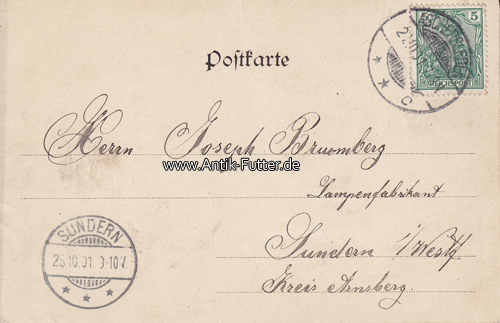 5
REICHSPOST
Postkarte
Herrn Joseph Brumberg
www.Antik-Futter.de
Lampenfabrikant
Sundern i/Westf
Kreis Arnsberg
SUNDERN
25.10.01. 9-10V.